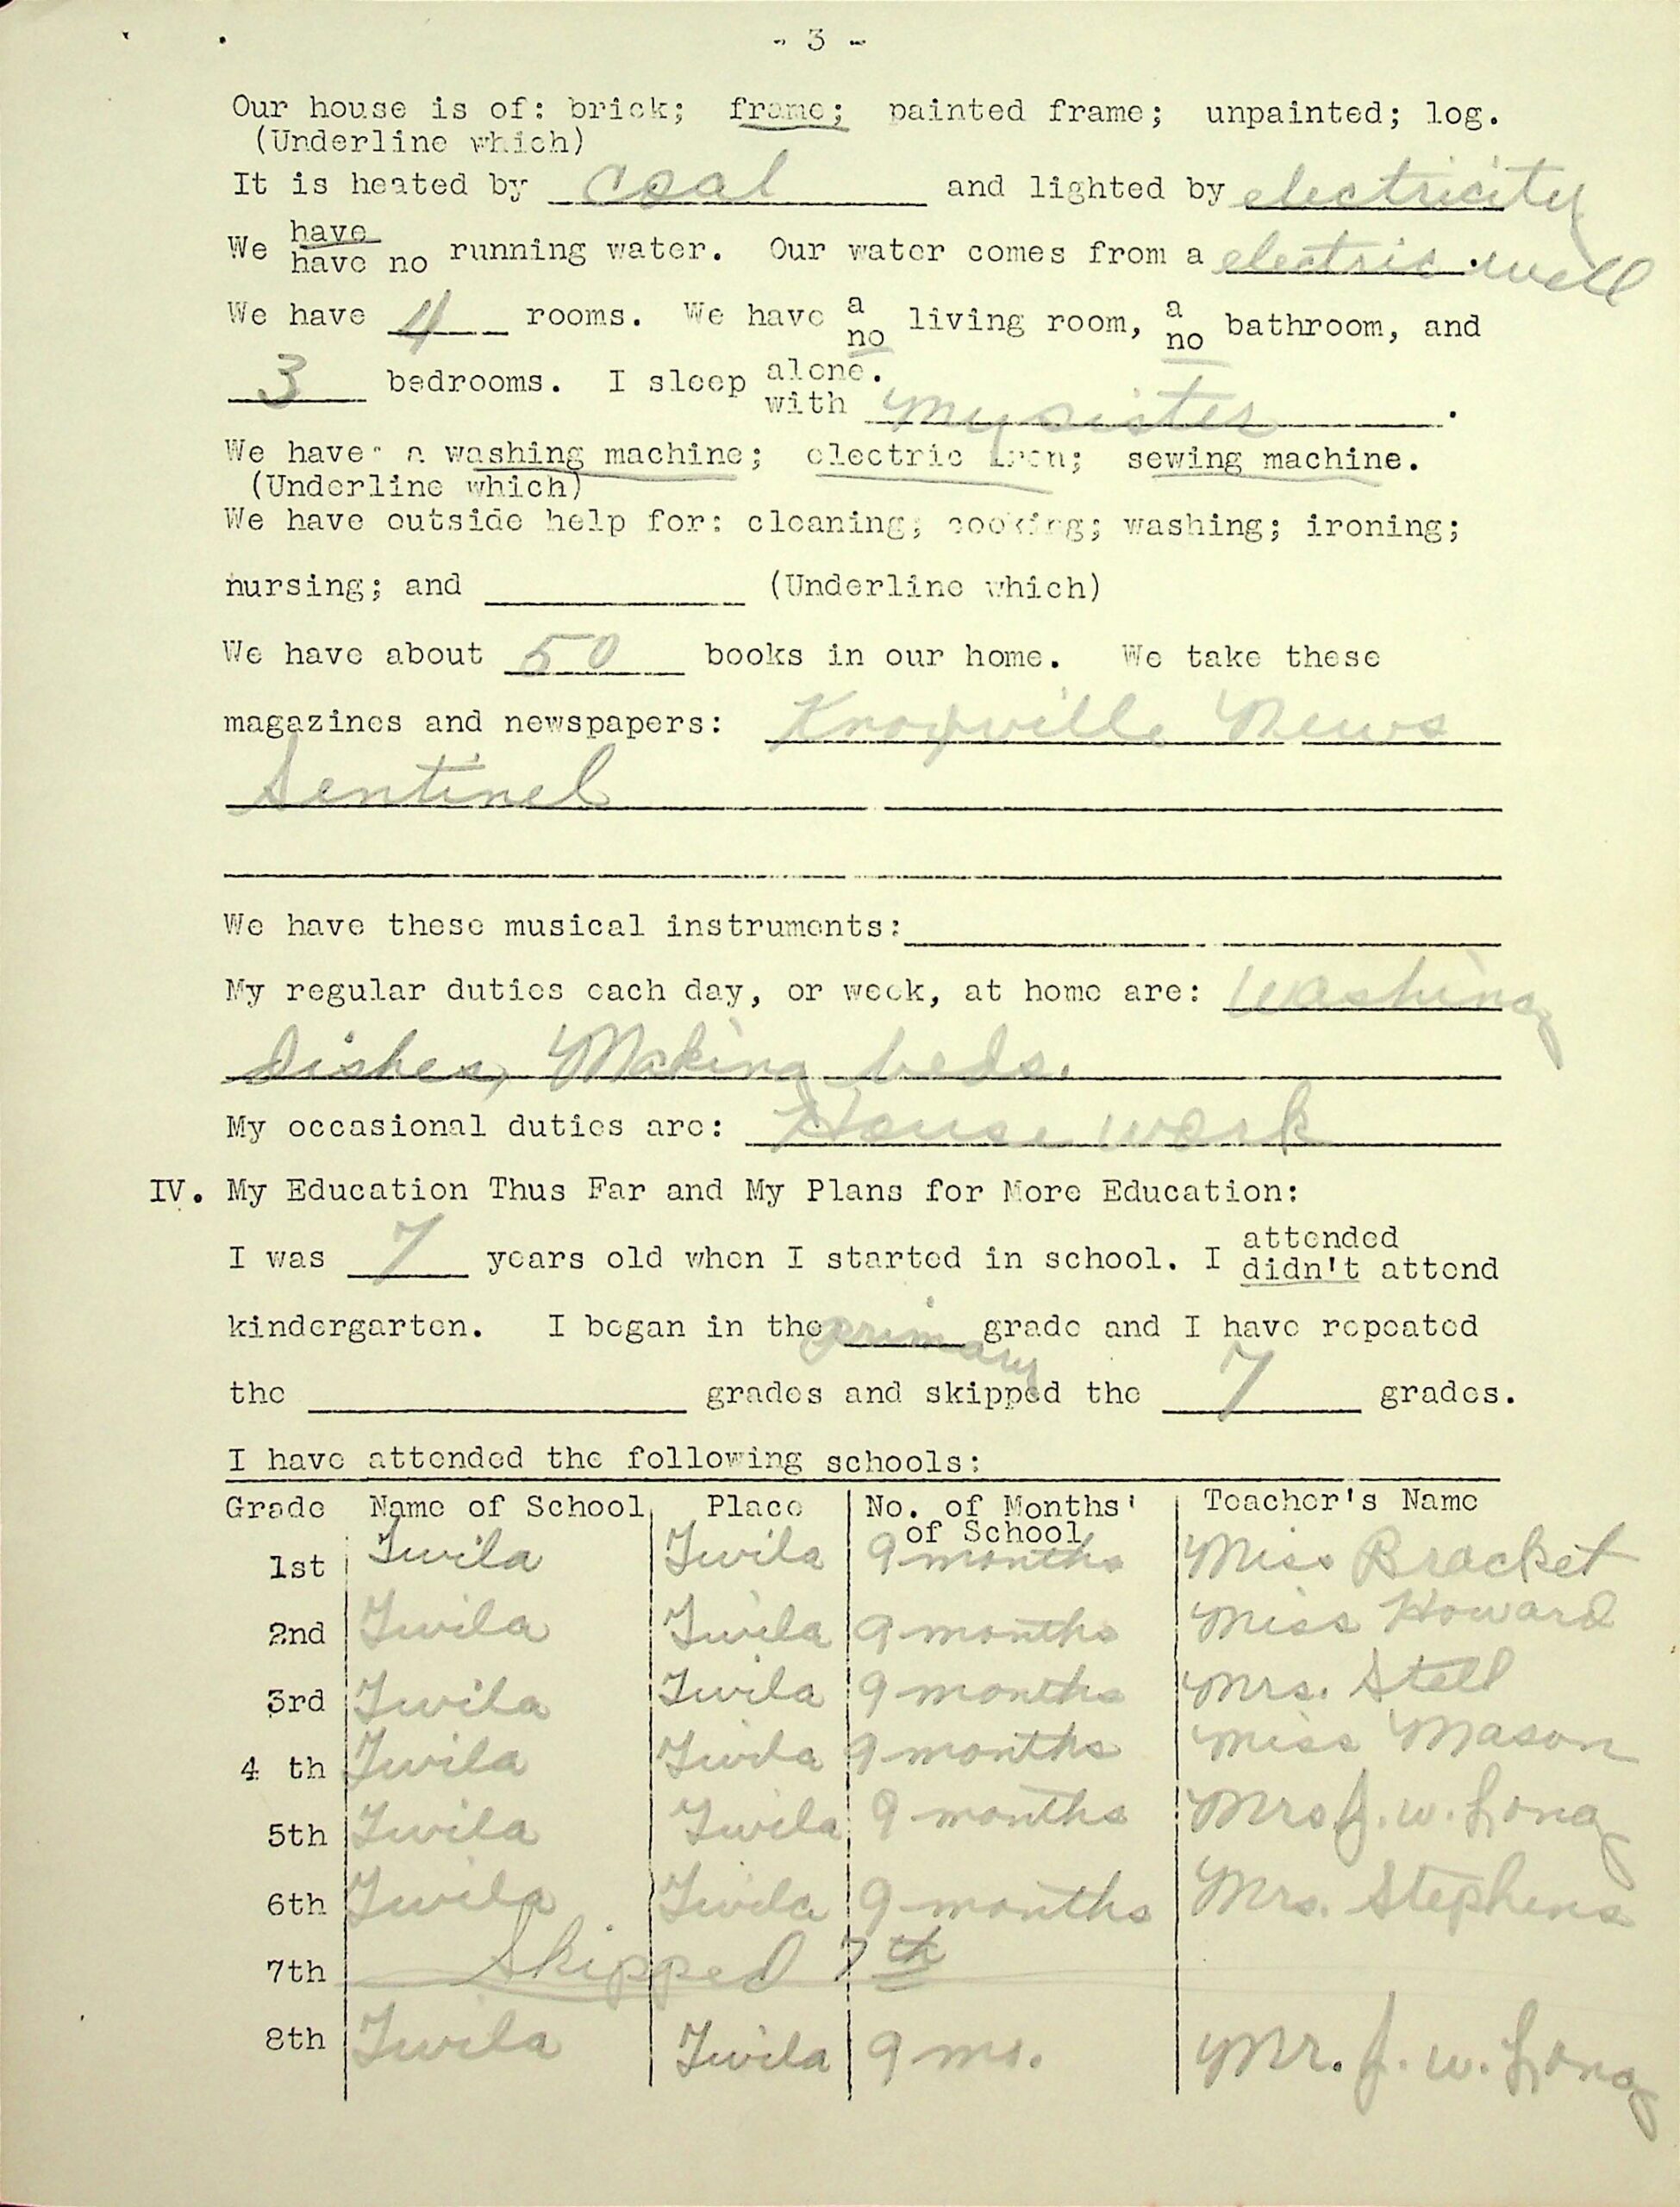 - 3 -
Our house is of: brick; frame; painted frame; unpainted; log.
(Underline which)
It is heated by coal and lighted by electricity
We have have no running water. Our water comes from a electric well.
We have 4 rooms. We have a no living room, a no bathroom, and
3 bedrooms. I sleep alone. with my sister.
We have a washing machine; electric iron; sewing machine.
(Underline which)
We have outside help for: cleaning; cooking; washing; ironing;
nursing; and (Underline which)
We have about 50 books in our home. We take these
magazines and newspapers: Knoxville News
Sentinel
We have these musical instruments:
My regular duties each day, or week, at home are: Washing
Dishes, Making beds.
My occasional duties are: House work
IV. My Education Thus Far and My Plans for More Education:
I was 7 years old when I started in school. I attended didn't attend
kindergarten. I began in the primary grade and I have repeated
the grades and skipped the 7 grades.
I have attended the following schools:
Grade Name of School Place No. of Months' of School Teacher's Name
1st Twila Twila 9 months Miss Bracket
2nd Twila Twila 9 months Miss Howard
3rd Twila Twila 9 months Mrs. Stell
4 th Twila Twila 9 months Miss Mason
5th Twila Twila 9 months Mrs J. W. Long
6th Twila Twila 9 months Mrs. Stephens
7th Skipped 7th
8th Twila Twila 9 mo. Mr. J. W. Long